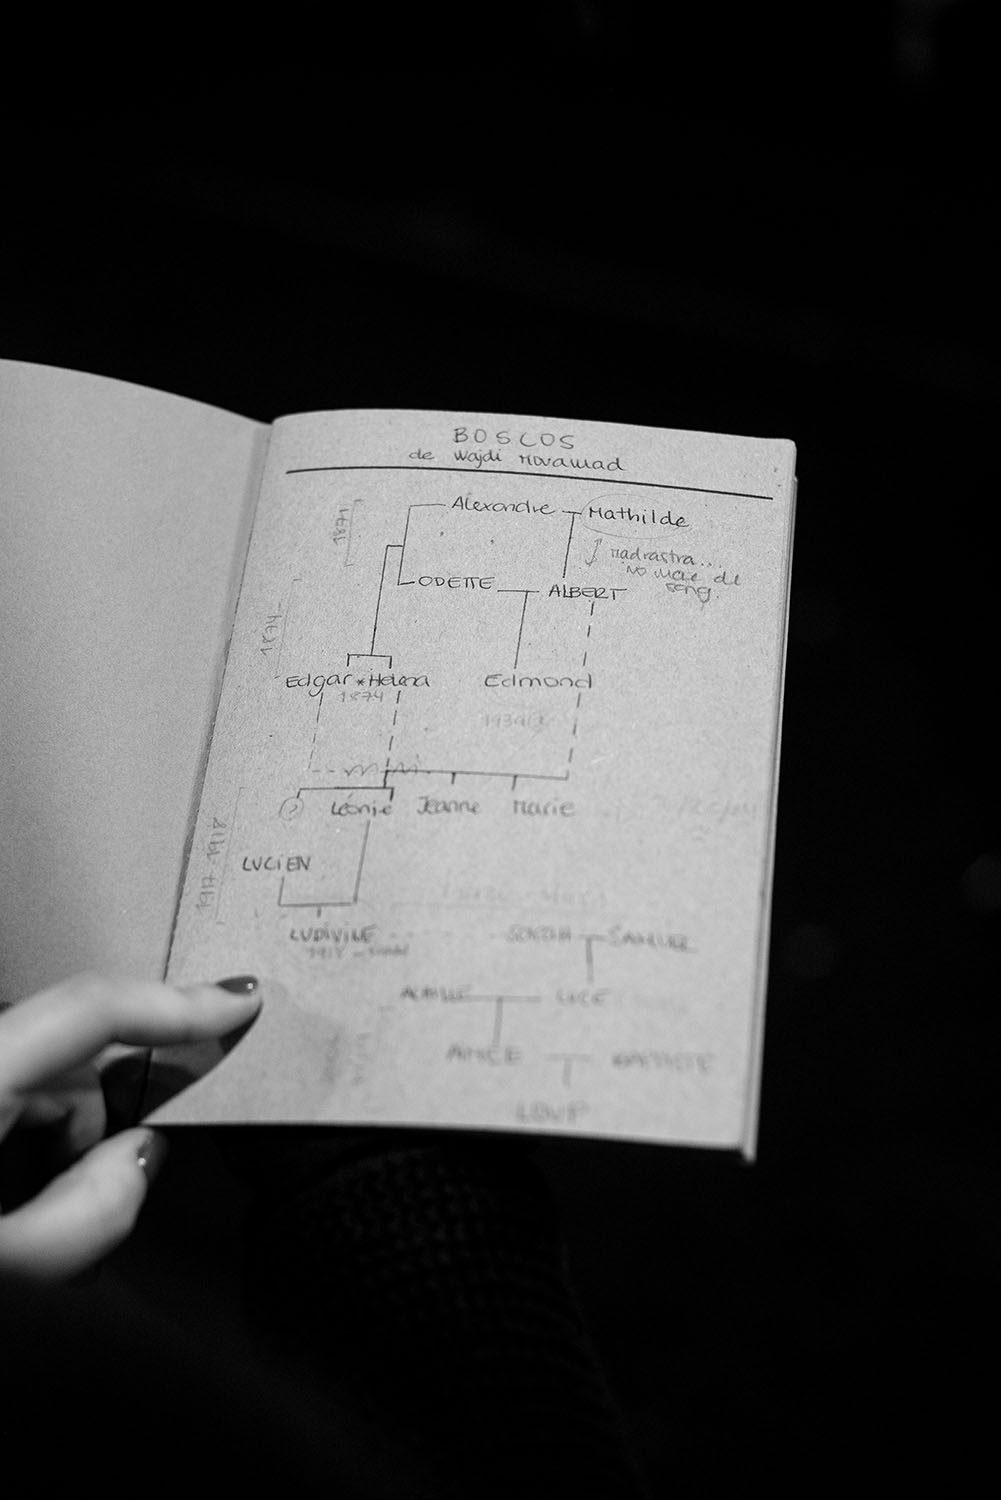 BOSCOS
de Wajdi Mouawad
1871
Alexandre Mathilde
Madrastra...
NO mare de
sang.
ODETTE ALBERT
1874-
Edgar * Helena Edmond
1874
(?) Léonie Jeanne Marie
1917-1918
LUCIEN
LUDIVINE SARAH SAMUEL
ACHILLE LUCE
AIMÉE BAPTISTE
LOUP